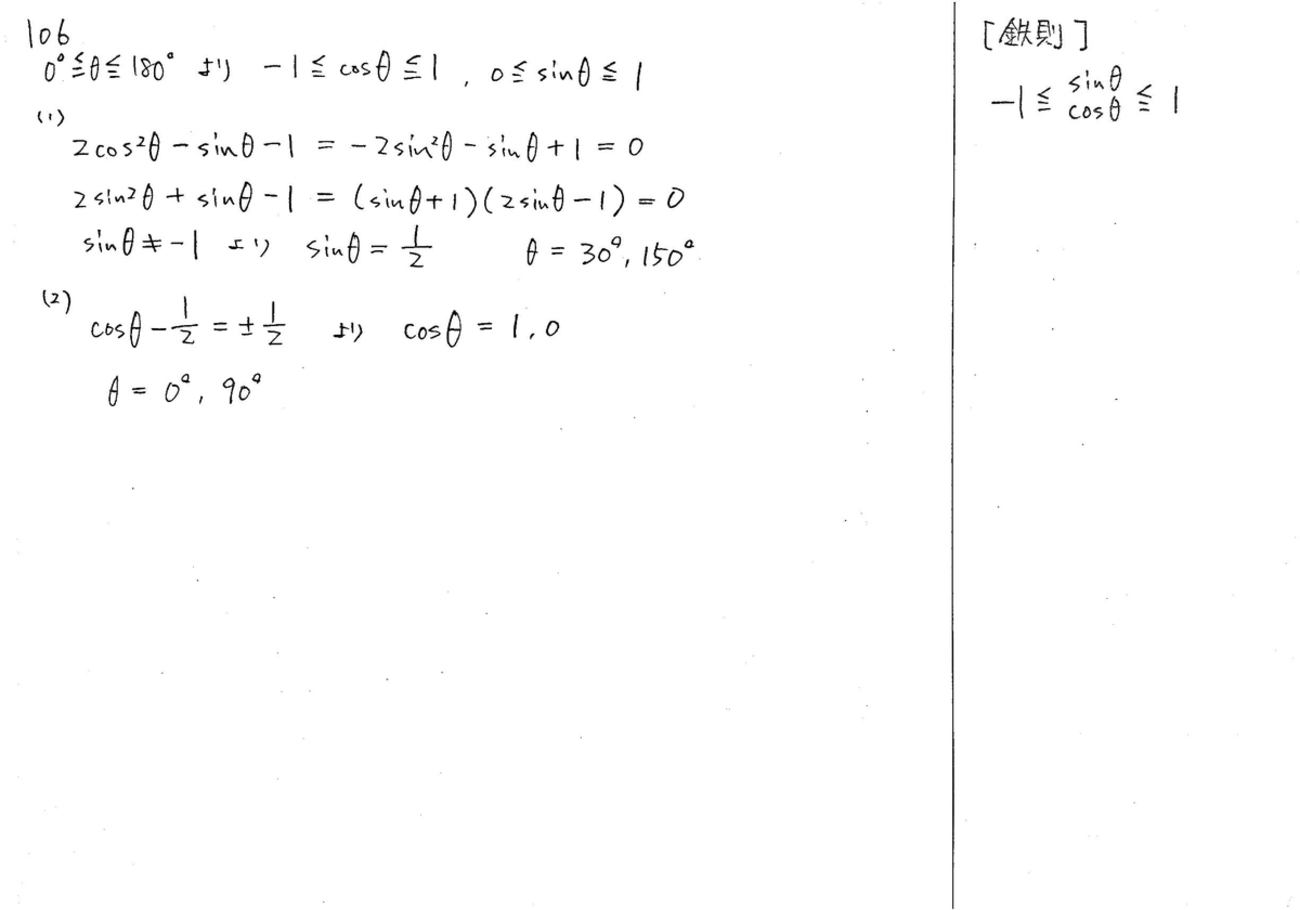 106
0°≦θ≦180° より -1≦cosθ≦1, 0≦sinθ≦1
(1)
2cos²θ-sinθ-1 = -2sin²θ-sinθ+1 = 0
2sin²θ+sinθ-1 = (sinθ+1)(2sinθ-1) = 0
sinθ≠-1 より sinθ=1/2 θ = 30°, 150°
(2)
cosθ-1/2 = ±1/2 より cosθ = 1, 0
θ = 0°, 90°
[鉄則]
-1≦ sinθ cosθ ≦1